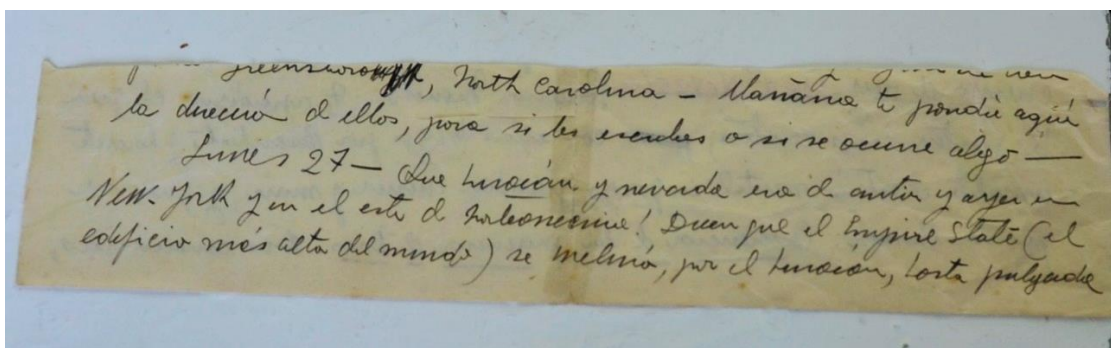 Greensborough, North Carolina – Mañana te pondré aquí
la dirección d ellos, para si les escribes o si se ocurre algo —
Lunes 27 — Que huracán y nevada era d antier y ayer en
New-York y en el este d Norteamerica! Dicen que el Empire State (el
edificio más alto del mundo) se inclinó, por el huracán, hasta pulgada